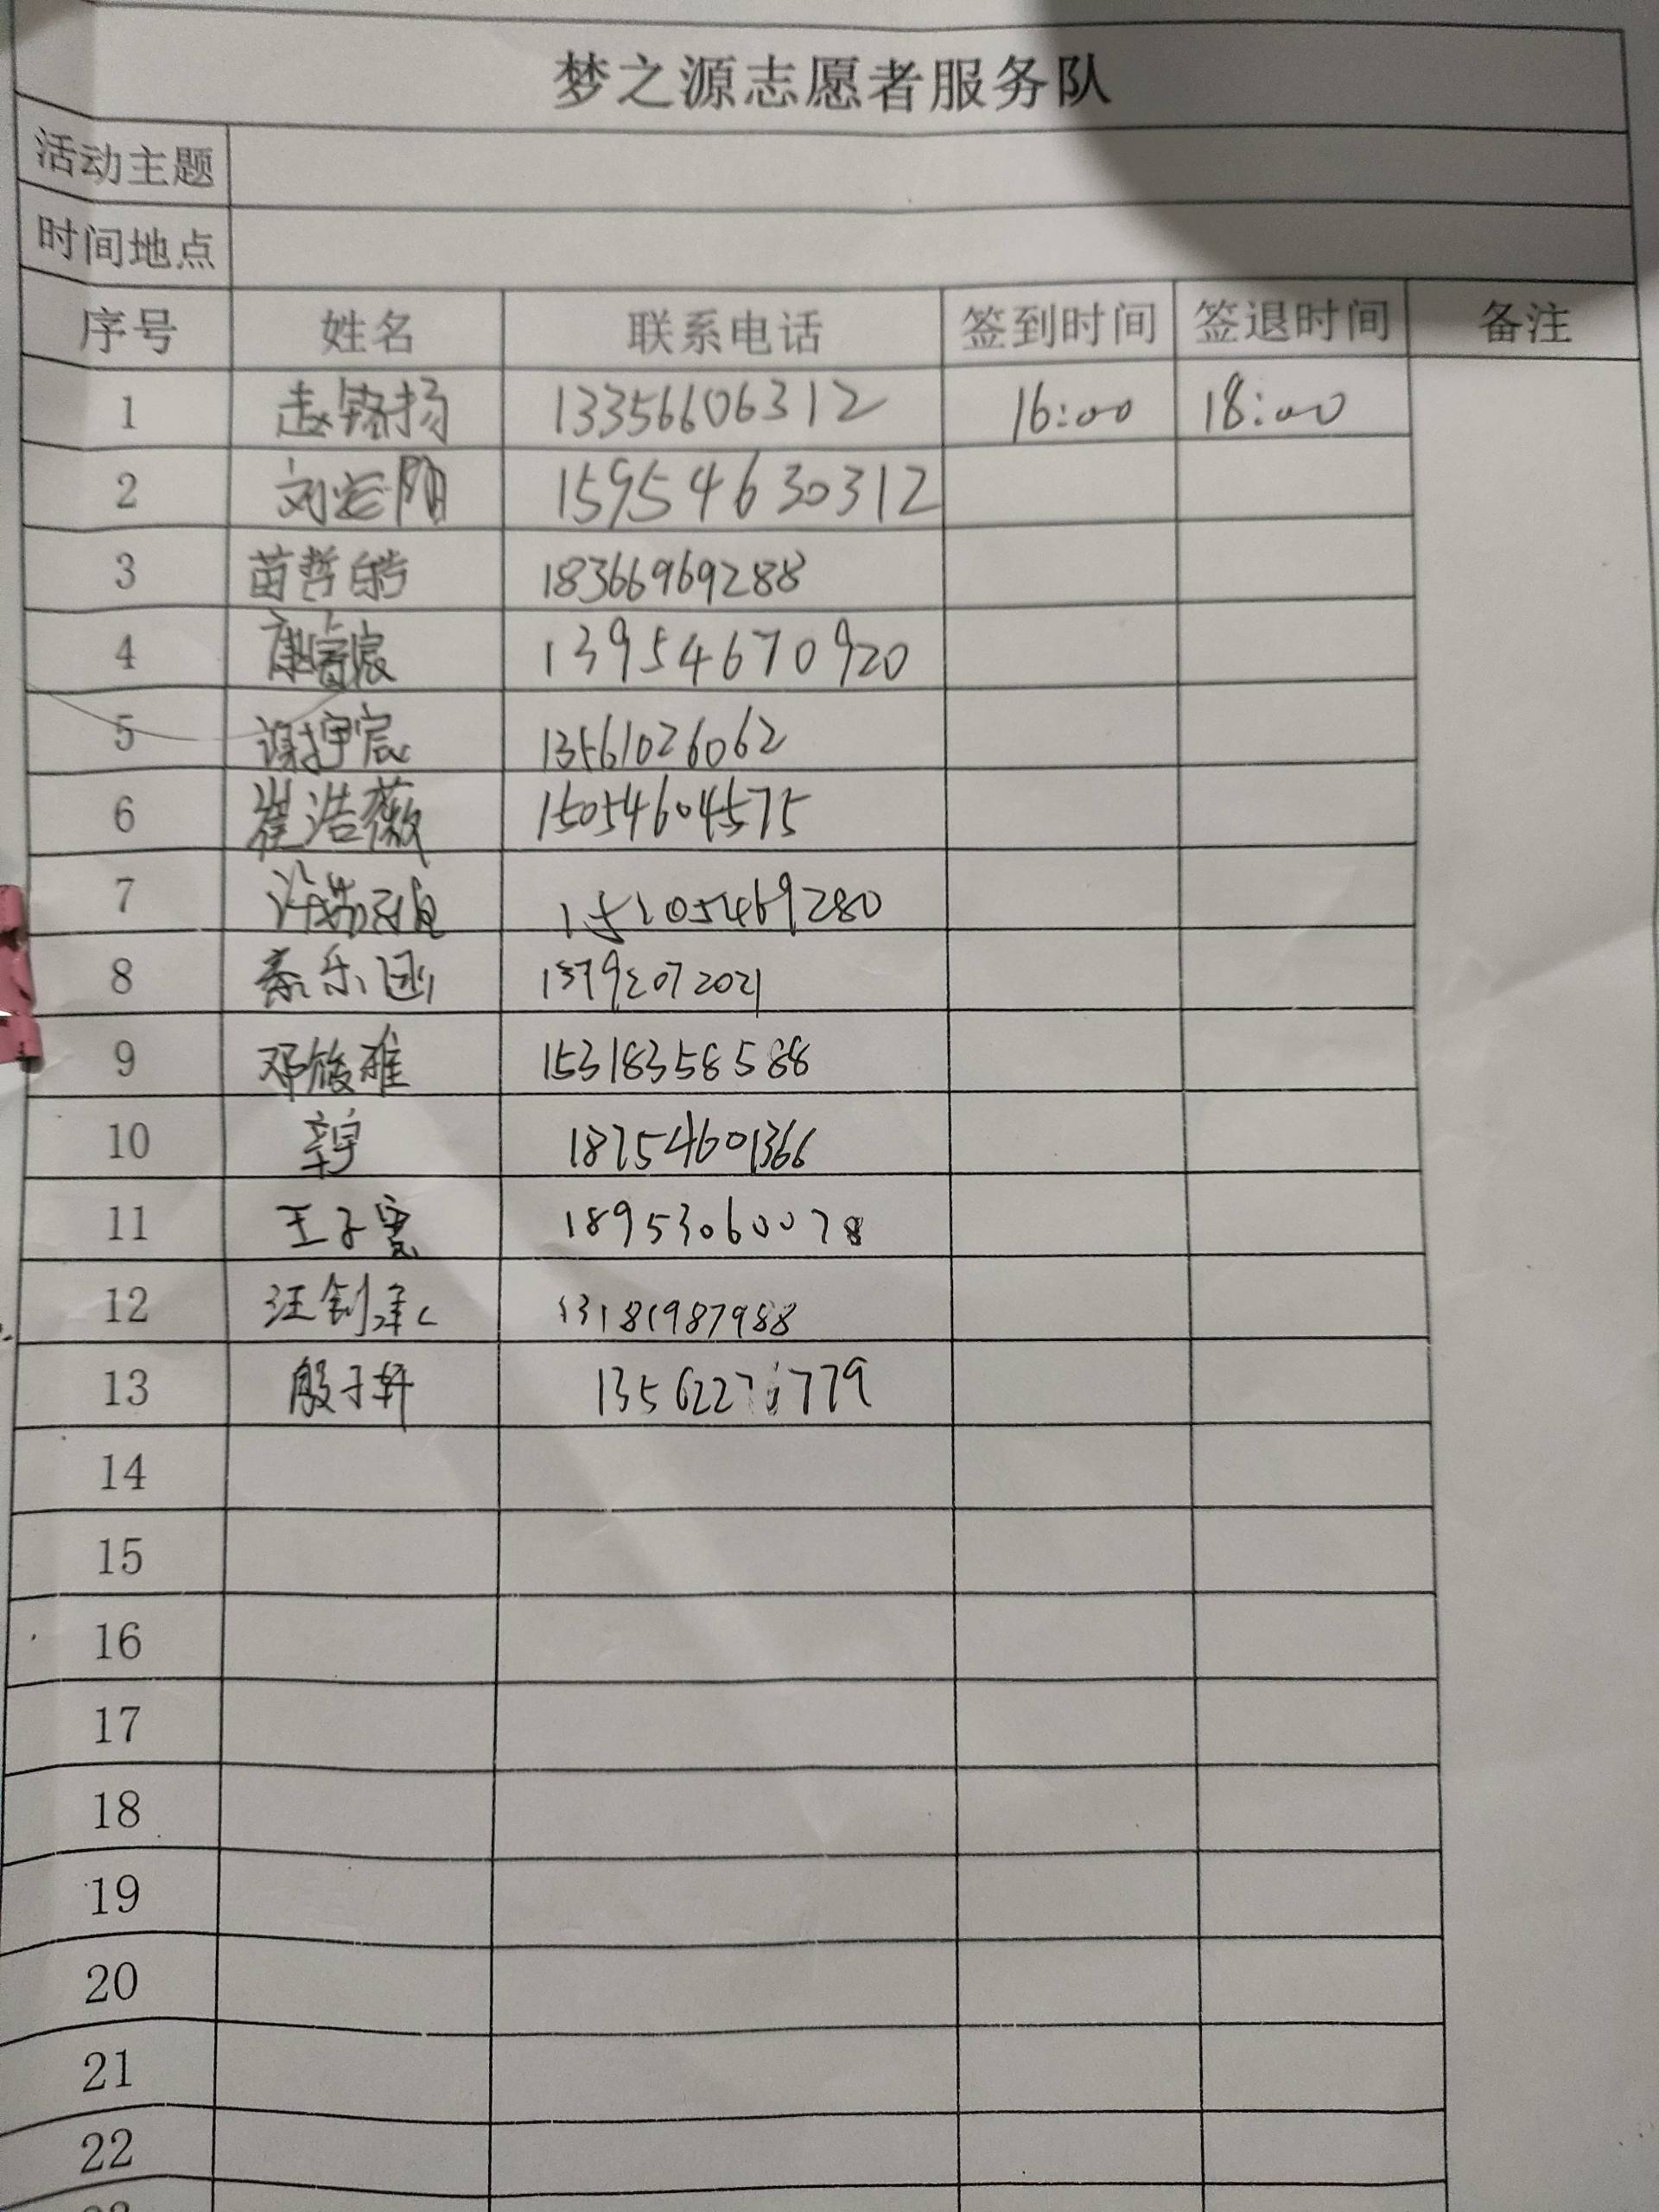 梦之源志愿者服务队
活动主题
时间地点
序号 姓名 联系电话 签到时间 签退时间 备注
1 赵铭扬 13356606312 16:00 18:00
2 刘 阳 15954630312
3 苗哲皓 18366969288
4 康睿宸 13954670920
5 谢宇宸 13561026062
6 崔浩薇 15054604575
7 许
8 秦乐
9 邓俊雅 15318358588
10 辛宇 18754601366
11 王子寞 18953060078
12 汪钊 13181987988
13 殷子轩
14
15
16
17
18
19
20
21
22